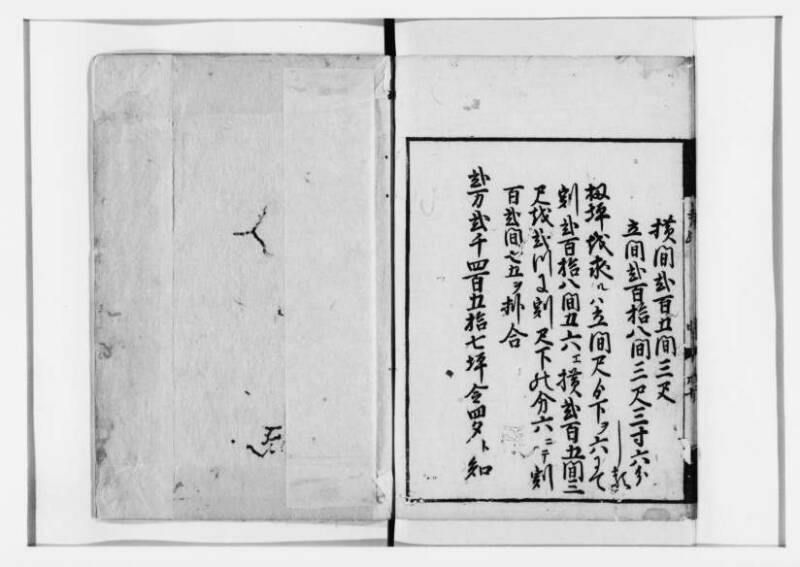 横間弐百五間三尺
立間弐百拾八間三尺三寸六分
坪城求ルハ立間尺分下ヲ六ニて
割弐百拾八間五六工横弐百五間三
尺城弐ツに割尺下の分六ニテ割
百弐間七五ヲ掛合
弐万弐千四百五拾七坪令四夕ト知